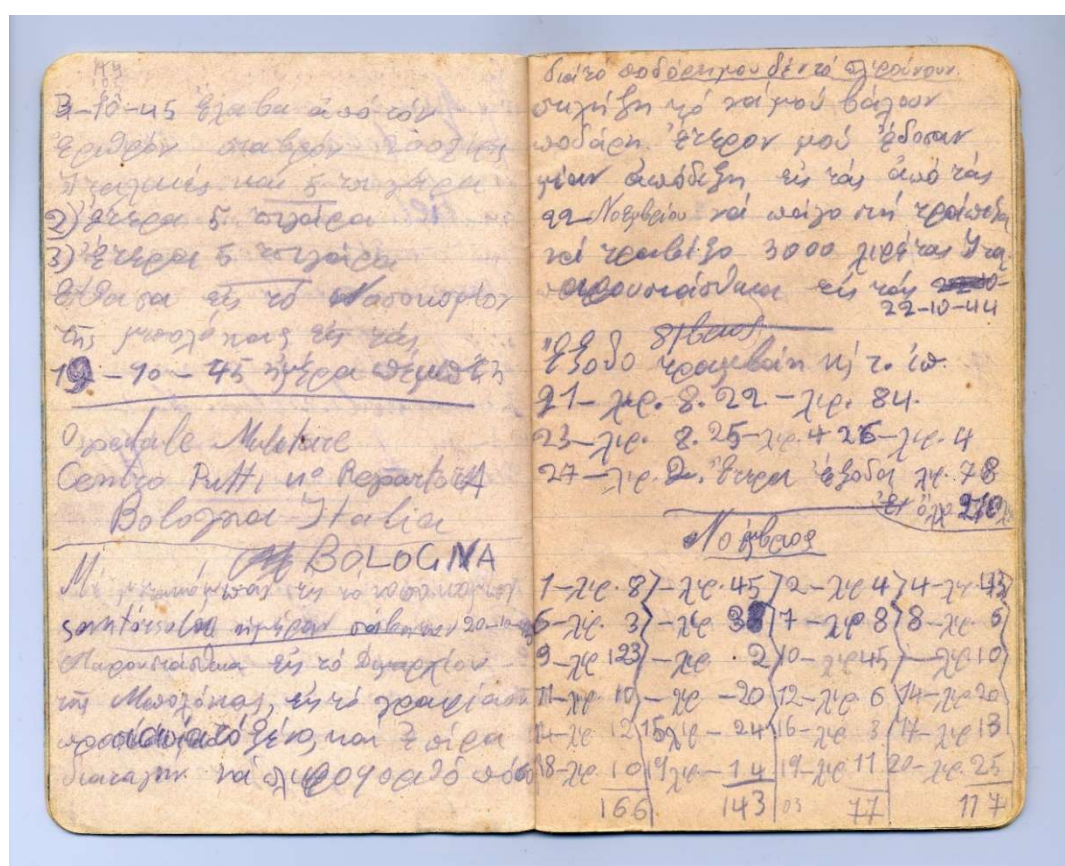 3-10-45 ἔλαβα ἀπό τόν
ἐριθρόν σταβρόν
Ἰταλικές και 5 τσιγάρα
2) ἕτερα 5 τσιγάρα
3) ἕτερα 5 τσιγάρα
ἔφθασα εἰς τό Νοσοκομίον
τῆς μπολόνιας εἰς τάς
19-10-45 ἡμέρα πέμπτη
Ospentale Mulitare
Centro Putti nº Reparto
Bologna Italia
BOLOGNA
Μέ εἰς τό νοσοκομίον
ημέραν σάβατον 20-10-
Παρουσιάσθικα εἰς τό Διμαρχίον
της Μπολόνιας, εἰς τό γραφίον
και ἐπίρα
διαταγήν νά πλιροφοριθό πόσο
διά το ποδόρημου δέν τό πλιρόνουν
νά μού βάλουν
ποδάρη. Ἕτερον μού ἔδοσαν
μίαν ἀπόδειξη εἰς τάς ἀπό τάς
22 Νοεμβρίου νά πάγο στή τράπεζα
νά τραβίξο 3000 λιρέτας Ἰτα.
παρουσιάσθικα εἰς τάς
22-10-44
8/βριος
ἔξοδο τραμβάη κ τ.
21-λιρ. 8. 22.-λιρ. 84.
23-λιρ. 8. 25-λιρ. 4 26-λιρ. 4
27-λιρ. 2. ἕτερα ἔξοδα λιρ. 78
210
Νοέμβριος
1-λιρ. 8 -λιρ. 45 2-λιρ 4 4-λιρ. 43
6-λιρ. 3 -λιρ 38 7-λιρ 8 8-λιρ. 6
9-λιρ 123 -λιρ 2 10-λιρ 45 -λιρ 10
11-λιρ. 10 -λιρ -20 12-λιρ. 6 14-λιρ 20
λιρ. 12 15 λιρ-24 16-λιρ 3 17-λιρ 13
18-λιρ. 10 19 λιρ-14 19-λιρ 11 20-λιρ. 25
166 143 03 77 117